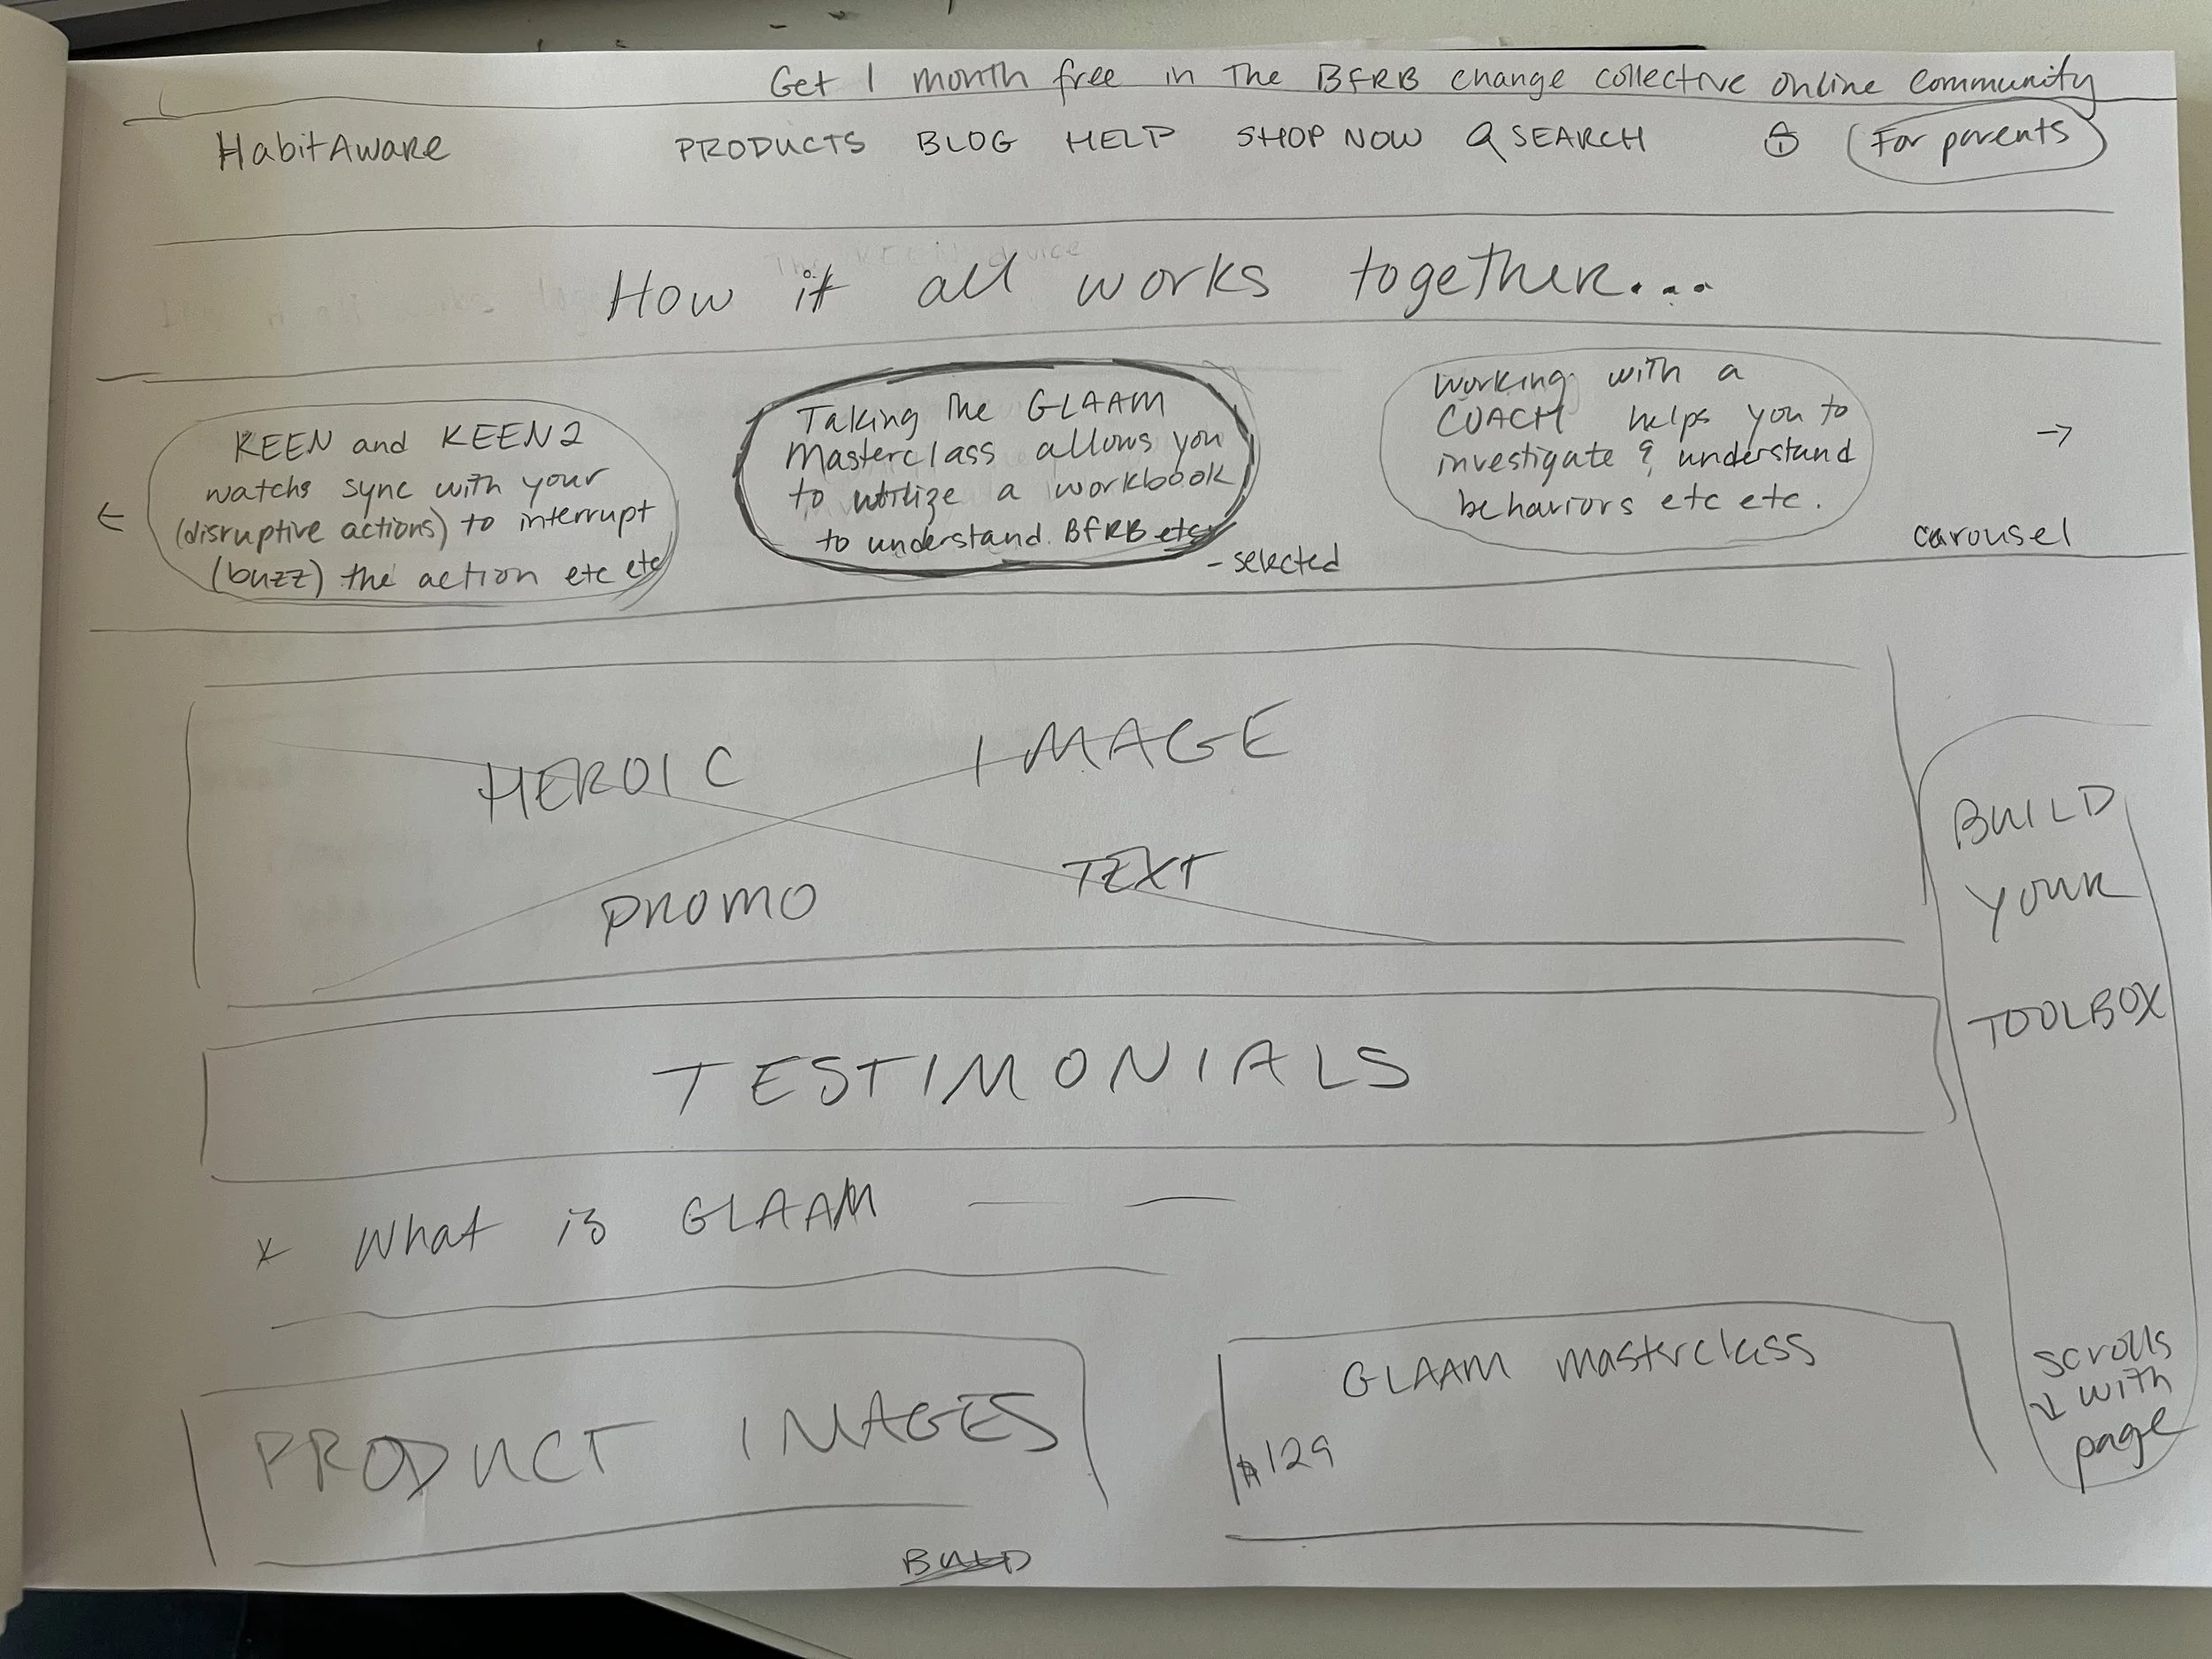 Get 1 month free in The BFRB change collective online community
HabitAware PRODUCTS BLOG HELP SHOP NOW SEARCH For parents
How it all works together...
KEEN and KEEN2
watchs sync with your
(disruptive actions) to interrupt
(buzz) the action etc etc
Taking The GLAAM
Masterclass allows you
to utilize a workbook
to understand BFRB etc
- selected
Working with a
COACH helps you to
investigate & understand
behaviors etc etc.
→
←
carousel
HEROIC IMAGE
PROMO TEXT
BUILD
YOUR
TOOLBOX
scrolls
↓ with
page
TESTIMONIALS
* What is GLAAM — —
PRODUCT IMAGES
GLAAM masterclass
$129
BUILD